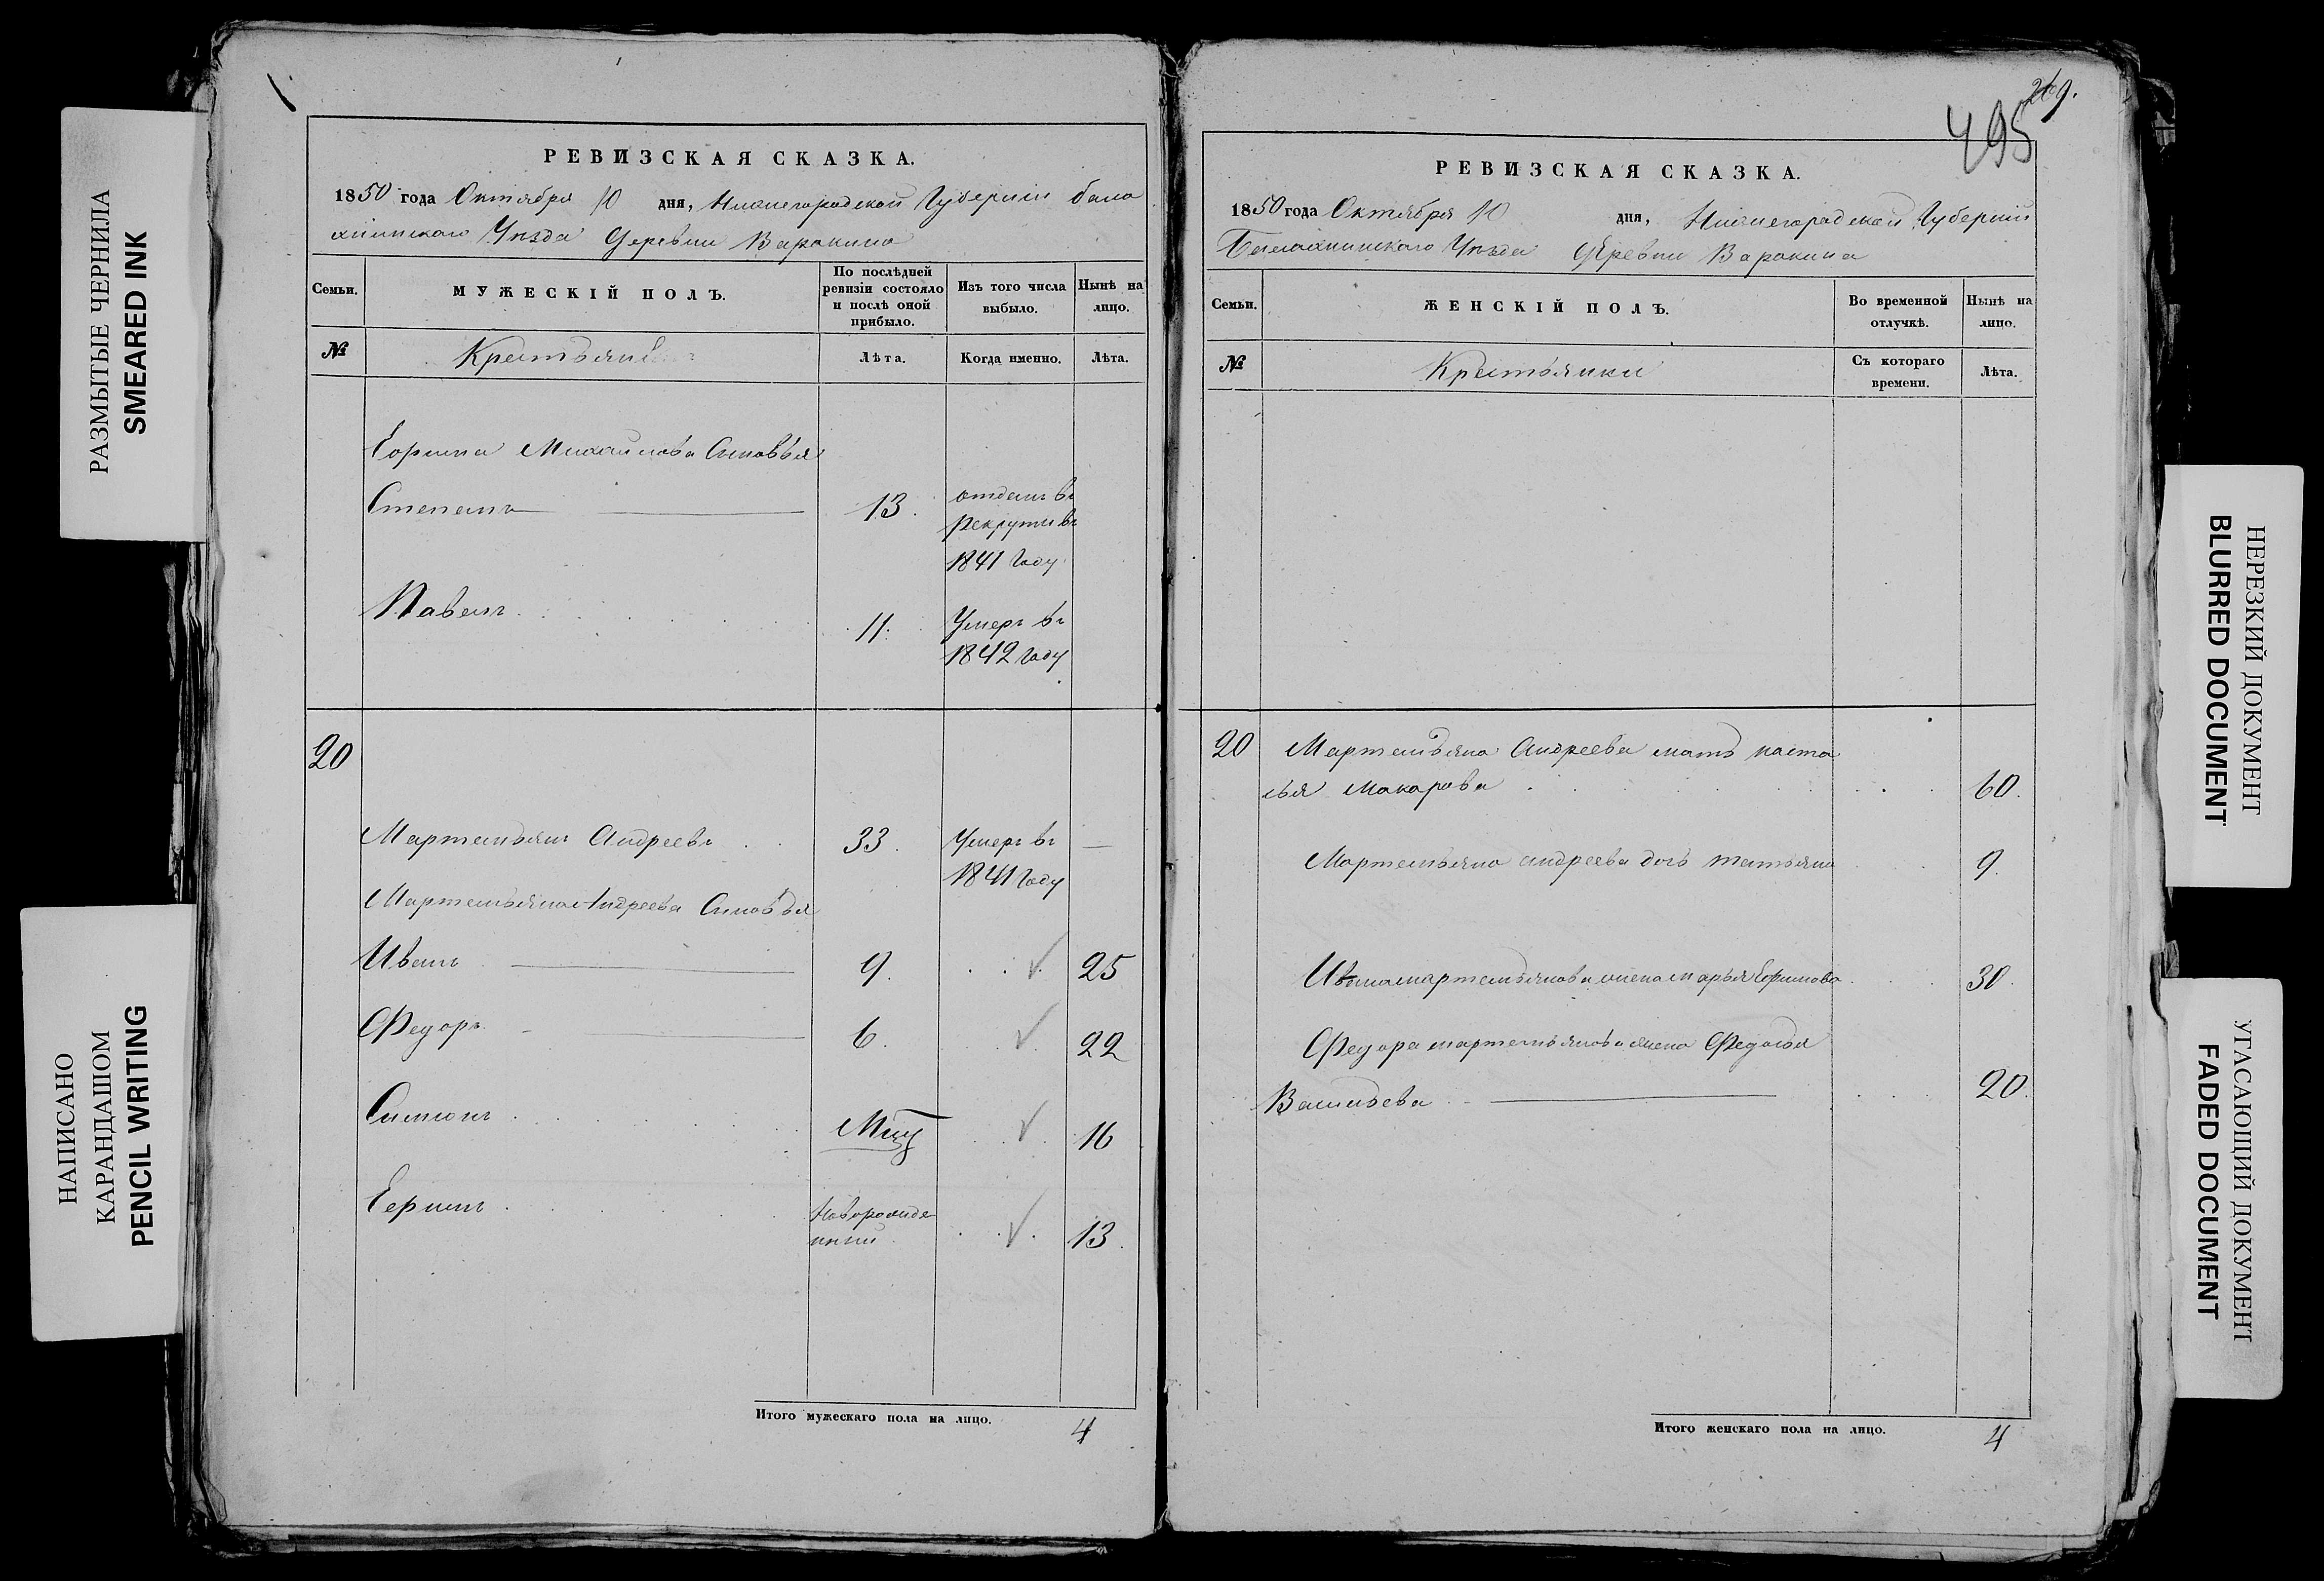 РАЗМЫТЫЕ ЧЕРНИЛА
SMEARED INK
НАПИСАНО
КАРАНДАШОМ
PENCIL WRITING
РЕВИЗСКАЯ СКАЗКА.
1850 года Октября 10 дня, Нижегородской Губернии бала
хнинскаго Уѣзда Деревни Варакина
Семьи.
МУЖЕСКІЙ ПОЛЪ.
По послѣдней
ревизіи состояло
и послѣ оной
прибыло.
Изъ того числа
выбыло.
Нынѣ на
лицо.
№
Крестьяне
Лѣта.
Когда именно.
Лѣта.
Михайлова Сыновья
Степанъ 13. отданъ въ
рекруты въ
1841 году
Павелъ 11. Умеръ въ
1842 году
20
Мартемьянъ Андреевъ 33. Умеръ въ —
1841 году
Мартемьяна Андреева Сыновья
Иванъ 9. 25
Федоръ 6. 22
Симіонъ 16
Ефимъ Новорожде
нный 13.
Итого мужескаго пола на лицо. 4
269.
495
РЕВИЗСКАЯ СКАЗКА.
1850 года Октября 10 дня, Нижегородской Губернии
Балахнинскаго Уѣзда Деревни Варакина
Семьи.
ЖЕНСКІЙ ПОЛЪ.
Во временной
отлучкѣ.
Нынѣ на
лицо.
№
Крестьянки
Съ котораго
времени.
Лѣта.
20 Мартемьяна Андреева мать наста
сья Макарова 60.
Мартемьяна андреева дочь татьяна 9.
Ивана мартемьянова жена марья Ефимова 30.
Федора мартемьянова жена Федосья
Васильева 20.
Итого женскаго пола на лицо. 4
НЕРЕЗКИЙ ДОКУМЕНТ
BLURRED DOCUMENT
УГАСАЮЩИЙ ДОКУМЕНТ
FADED DOCUMENT